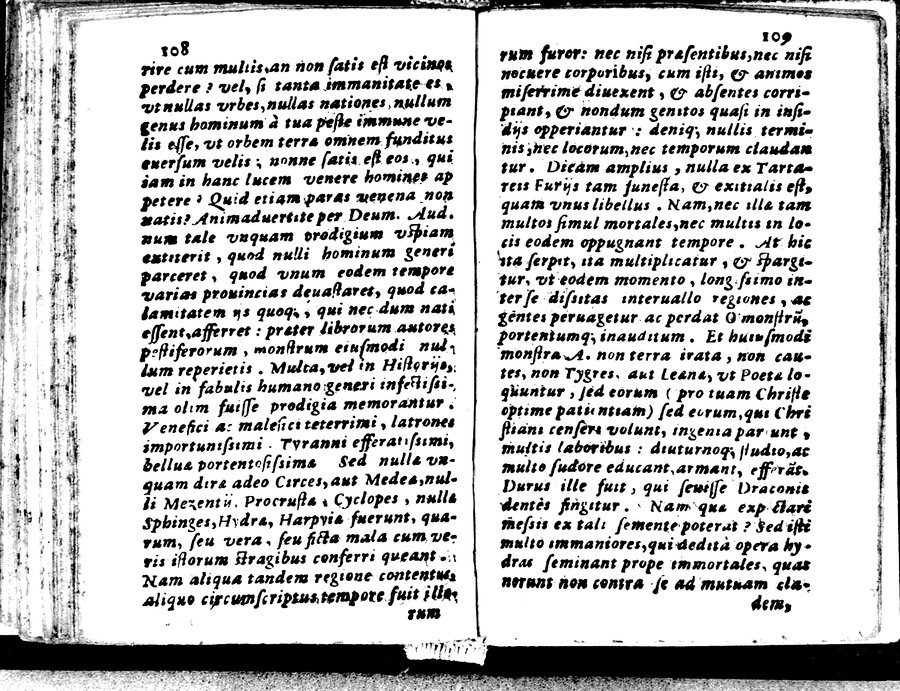 108
rire cum multis, an non satis est vicinos
perdere? vel, si tanta immanitate es,
vt nullas vrbes, nullas nationes, nullum
genus hominum à tua peste immune ve-
lis esse, vt orbem terræ omnem funditus
euersum velis; nonne satis est eos, qui
iam in hanc lucem venere homines ap
petere? Quid etiam paras venena non
natis? Animaduertite per Deum. Aud.
num tale vnquam prodigium vspiam
extiterit, quod nulli hominum generi
parceret, quod vnum eodem tempore
varias prouincias deuastaret, quod ca-
lamitatem ijs quoq;, qui nec dum nati
essent, afferret: præter librorum autores
pestiferorum, monstrum eiusmodi nul-
lum reperietis. Multa, vel in Historijs,
vel in fabulis humano generi infestissi-
ma olim fuisse prodigia memorantur.
Venefici ac malefici teterrimi, latrones
importunissimi. Tyranni efferatissimi,
belluæ portentosissimæ Sed nullæ vn-
quam diræ adeo Circes, aut Medeæ, nul-
li Mezentij, Procrustæ, Cyclopes, nullæ
Sphinges, Hydræ, Harpyiæ fuerunt, qua-
rum, seu vera, seu ficta mala cum ve-
ris istorum stragibus conferri queant.
Nam aliqua tandem regione contentus,
aliquo circumscriptus tempore fuit illo-
rum
109
rum furor: nec nisi præsentibus, nec nisi
nocuere corporibus, cum isti, & animos
miserrime diuexent, & absentes corri-
piant, & nondum genitos quasi in insi-
dijs opperiantur: deniq; nullis termi-
nis, nec locorum, nec temporum claudan
tur. Dicam amplius, nulla ex Tarta-
reis Furijs tam funesta, & exitialis est,
quam vnus libellus. Nam, nec illæ tam
multos simul mortales, nec multis in lo-
cis eodem oppugnant tempore. At hic
ita serpit, ita multiplicatur, & sparg-
tur, vt eodem momento, longissimo in-
ter se dissitas interuallo regiones, ac
gentes peruagetur ac perdat O monstrū,
portentumq; inauditum. Et huiusmodi
monstra A. non terra irata, non cau-
tes, non Tygres, aut Leæna, vt Poetæ lo-
quuntur, sed eorum (pro tuam Christe
optime patientiam) sed eorum, qui Chri
stiani censeri volunt, ingenia pariunt,
multis laboribus: diuturnoq; studio, ac
multo sudore educant, armant, efferāt.
Durus ille fuit, qui seuisse Draconis
dentes fingitur. Nam quæ exp ctari
messis ex tali semente poterat? Sed isti
multo immaniores, qui dedita opera hy-
dras seminant prope immortales, quas
norunt non contra se ad mutuam cla-
dem,